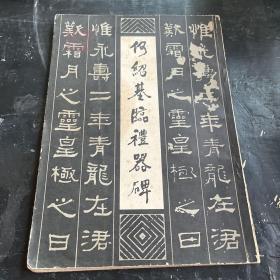 惟壽年青龍在涒
歎霜月之靈皇極之日
何紹基臨禮器碑
惟永壽二年青龍在涒
歎霜月之靈皇極之日